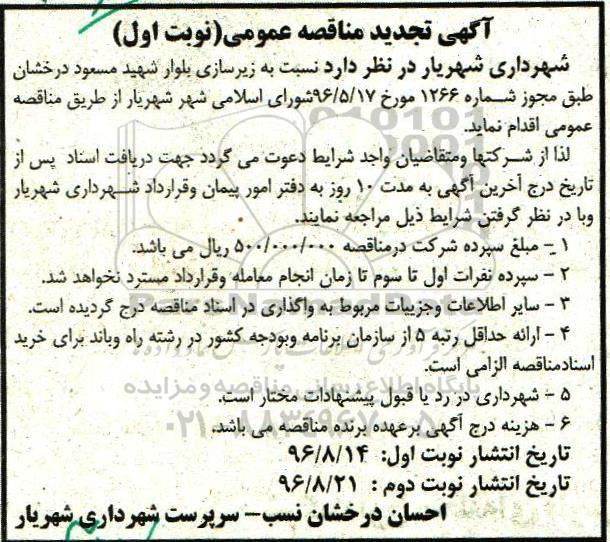 آگهی تجدید مناقصه عمومی(نوبت اول)
شهرداری شهریار در نظر دارد نسبت به زیرسازی بلوار شهید مسعود درخشان
طبق مجوز شماره ۱۲۶۶ مورخ ۹۶/۵/۱۷شورای اسلامی شهر شهریار از طریق مناقصه
عمومی اقدام نماید.
لذا از شرکتها ومتقاضیان واجد شرایط دعوت می گردد جهت دریافت اسناد پس از
تاریخ درج آخرین آگهی به مدت ۱۰ روز به دفتر امور پیمان وقرارداد شهرداری شهریار
وبا در نظر گرفتن شرایط ذیل مراجعه نمایند.
۱ - مبلغ سپرده شرکت درمناقصه ۵۰۰/۰۰۰/۰۰۰ ریال می باشد.
۲ - سپرده نفرات اول تا سوم تا زمان انجام معامله وقرارداد مسترد نخواهد شد.
۳ - سایر اطلاعات وجزییات مربوط به واگذاری در اسناد مناقصه درج گردیده است.
۴ - ارائه حداقل رتبه ۵ از سازمان برنامه وبودجه کشور در رشته راه وباند برای خرید
اسنادمناقصه الزامی است.
۵ - شهرداری در رد یا قبول پیشنهادات مختار است.
پایگاه اطلاع رسانی مناقصه و مزایده
۶ - هزینه درج آگهی برعهده برنده مناقصه می باشد.
تاریخ انتشار نوبت اول: ۹۶/۸/۱۴
تاریخ انتشار نوبت دوم : ۹۶/۸/۲۱
احسان درخشان نسب- سرپرست شهرداری شهریار